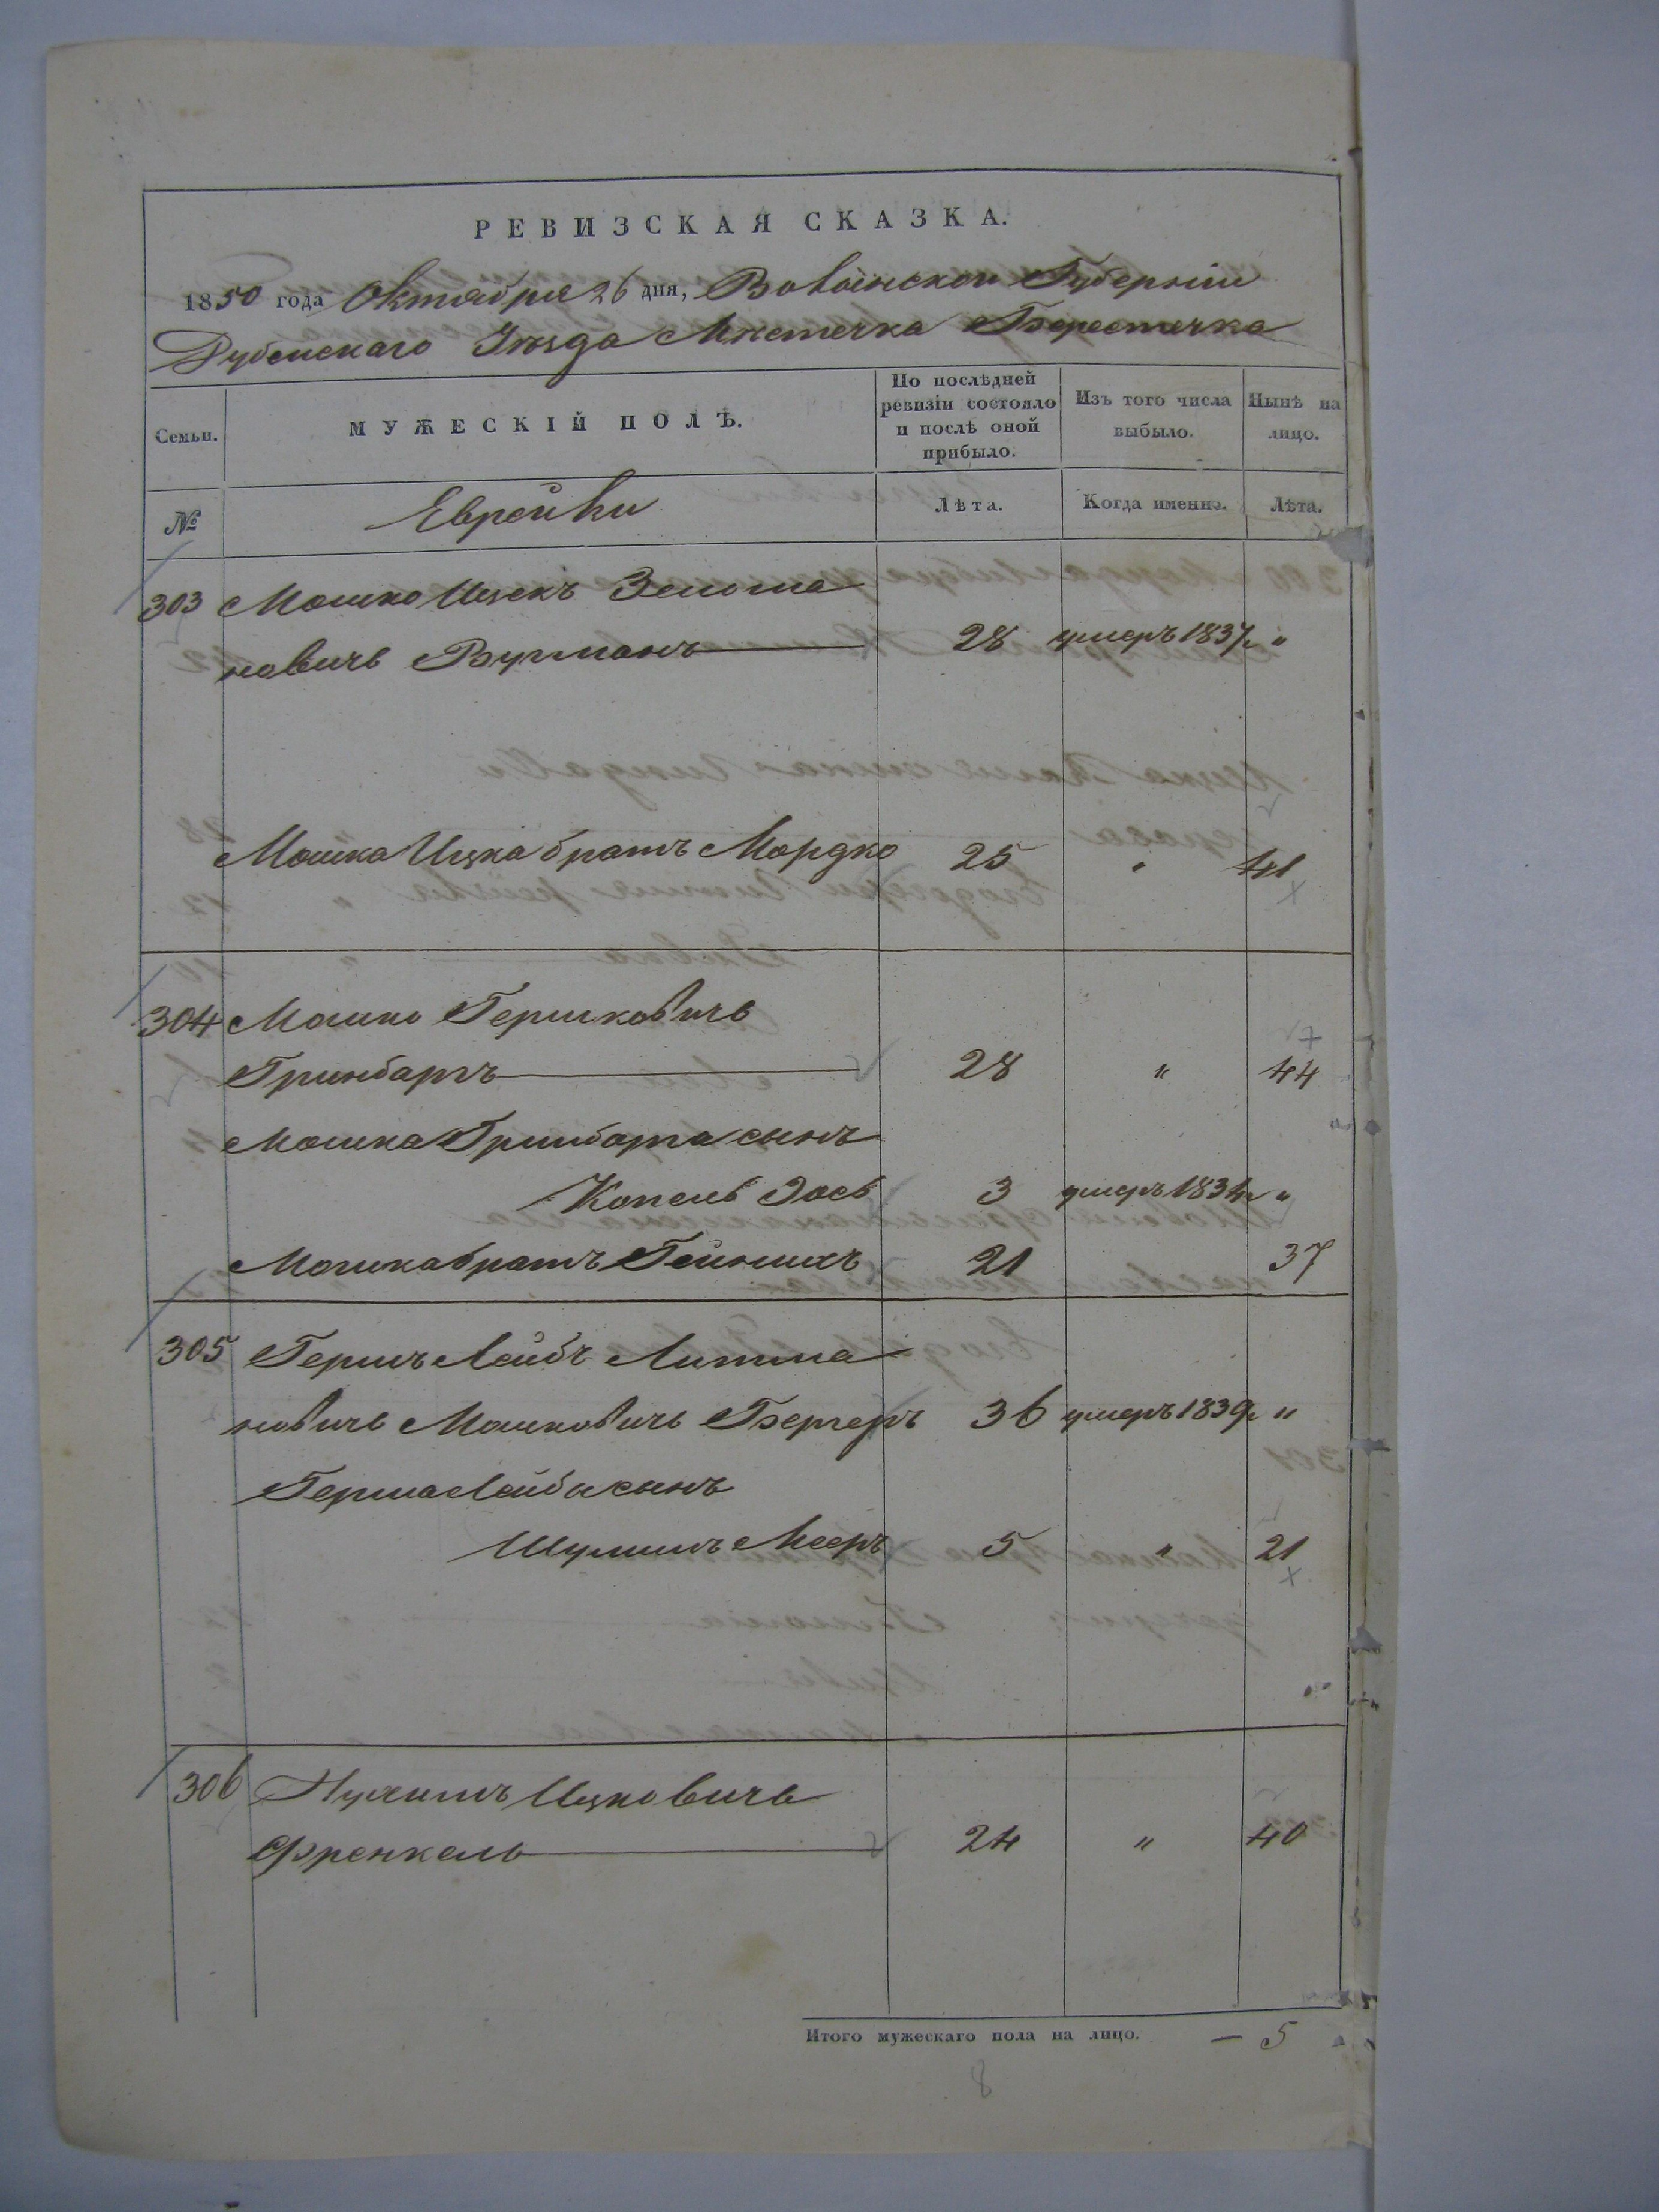 РЕВИЗСКАЯ СКАЗКА.
1850 года Октября 26 дня, Волынской Губерніи
Дубенскаго Уѣзда Мѣстечка Берестечка
Семьи. МУЖЕСКІЙ ПОЛЪ. По послѣдней ревизіи состояло и послѣ оной прибыло. Изъ того числа выбыло. Нынѣ на лицо.
№ Еврейки Лѣта. Когда именно. Лѣта.
303 Мошко Ицекъ Зельма
новичь 28 умеръ 1837 „
Мошка Ицка братъ Мордко 25 „ 41
304 Мошко Гершковичь
Гринбаргъ 28 „ 44
Мошка Гринбарга сынъ
Копель Іось 3 умеръ 1834 „
Мошка братъ Гейнихъ 21 37
305 Гершъ Лейбъ Литма
новичь Мошковичь Бергеръ 36 умеръ 1839 „
Герша Лейба сынъ
Шулимъ Мееръ 5 „ 21
306 Нухимъ Ицковичь
Френкель 24 „ 40
Итого мужескаго пола на лицо. — 5
8